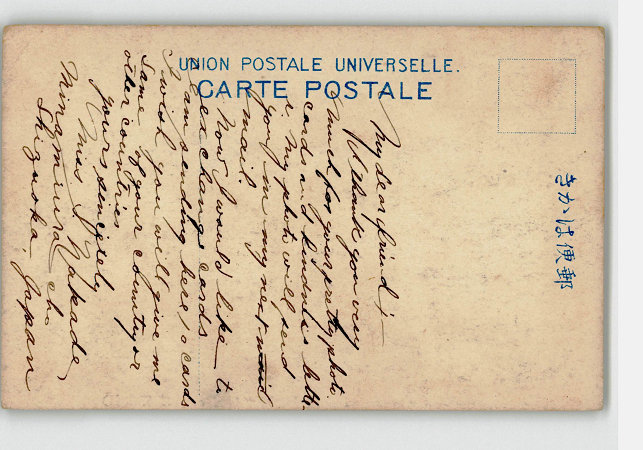 UNION POSTALE UNIVERSELLE.
CARTE POSTALE
きかは便郵
My dear friend! —
I thank you very
much for your pretty photo
cards and kindness letter
My photo will send
you in my next mail
mail.
Now I would like to
exchange cards
I am sending here 10 cards
I wish you will give me
same of your country or
other countries
yours sincerely
Miss J Nakade,
Minamiura cho
Shizuoka Japan